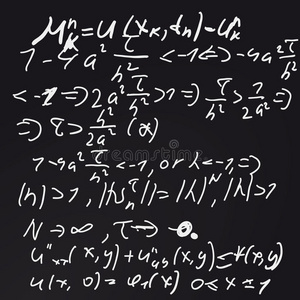 μⁿₖ = U(xₖ, tₙ) - Uⁿₖ
1 - 4a² τ/h² < -1 => -4a² τ/h²
< -1 => 2a² τ/h² > 1 => τ/h² > 1/2a² =>
=> τ > h²/2a² (α)
1 - 4a² τ/h² < -1, or λ < -1, =>
|λ| > 1, ||λsₙⁿ|| = |λ|ᴺ, |λ| > 1
N → ∞, τ → 0.
u"ₓₓ(x, y) + u"ᵧᵧ(x, y) ≤ f(x, y)
u(x, 0) = φ₁(x) 0 ≤ x ≤ 1
dreamstime